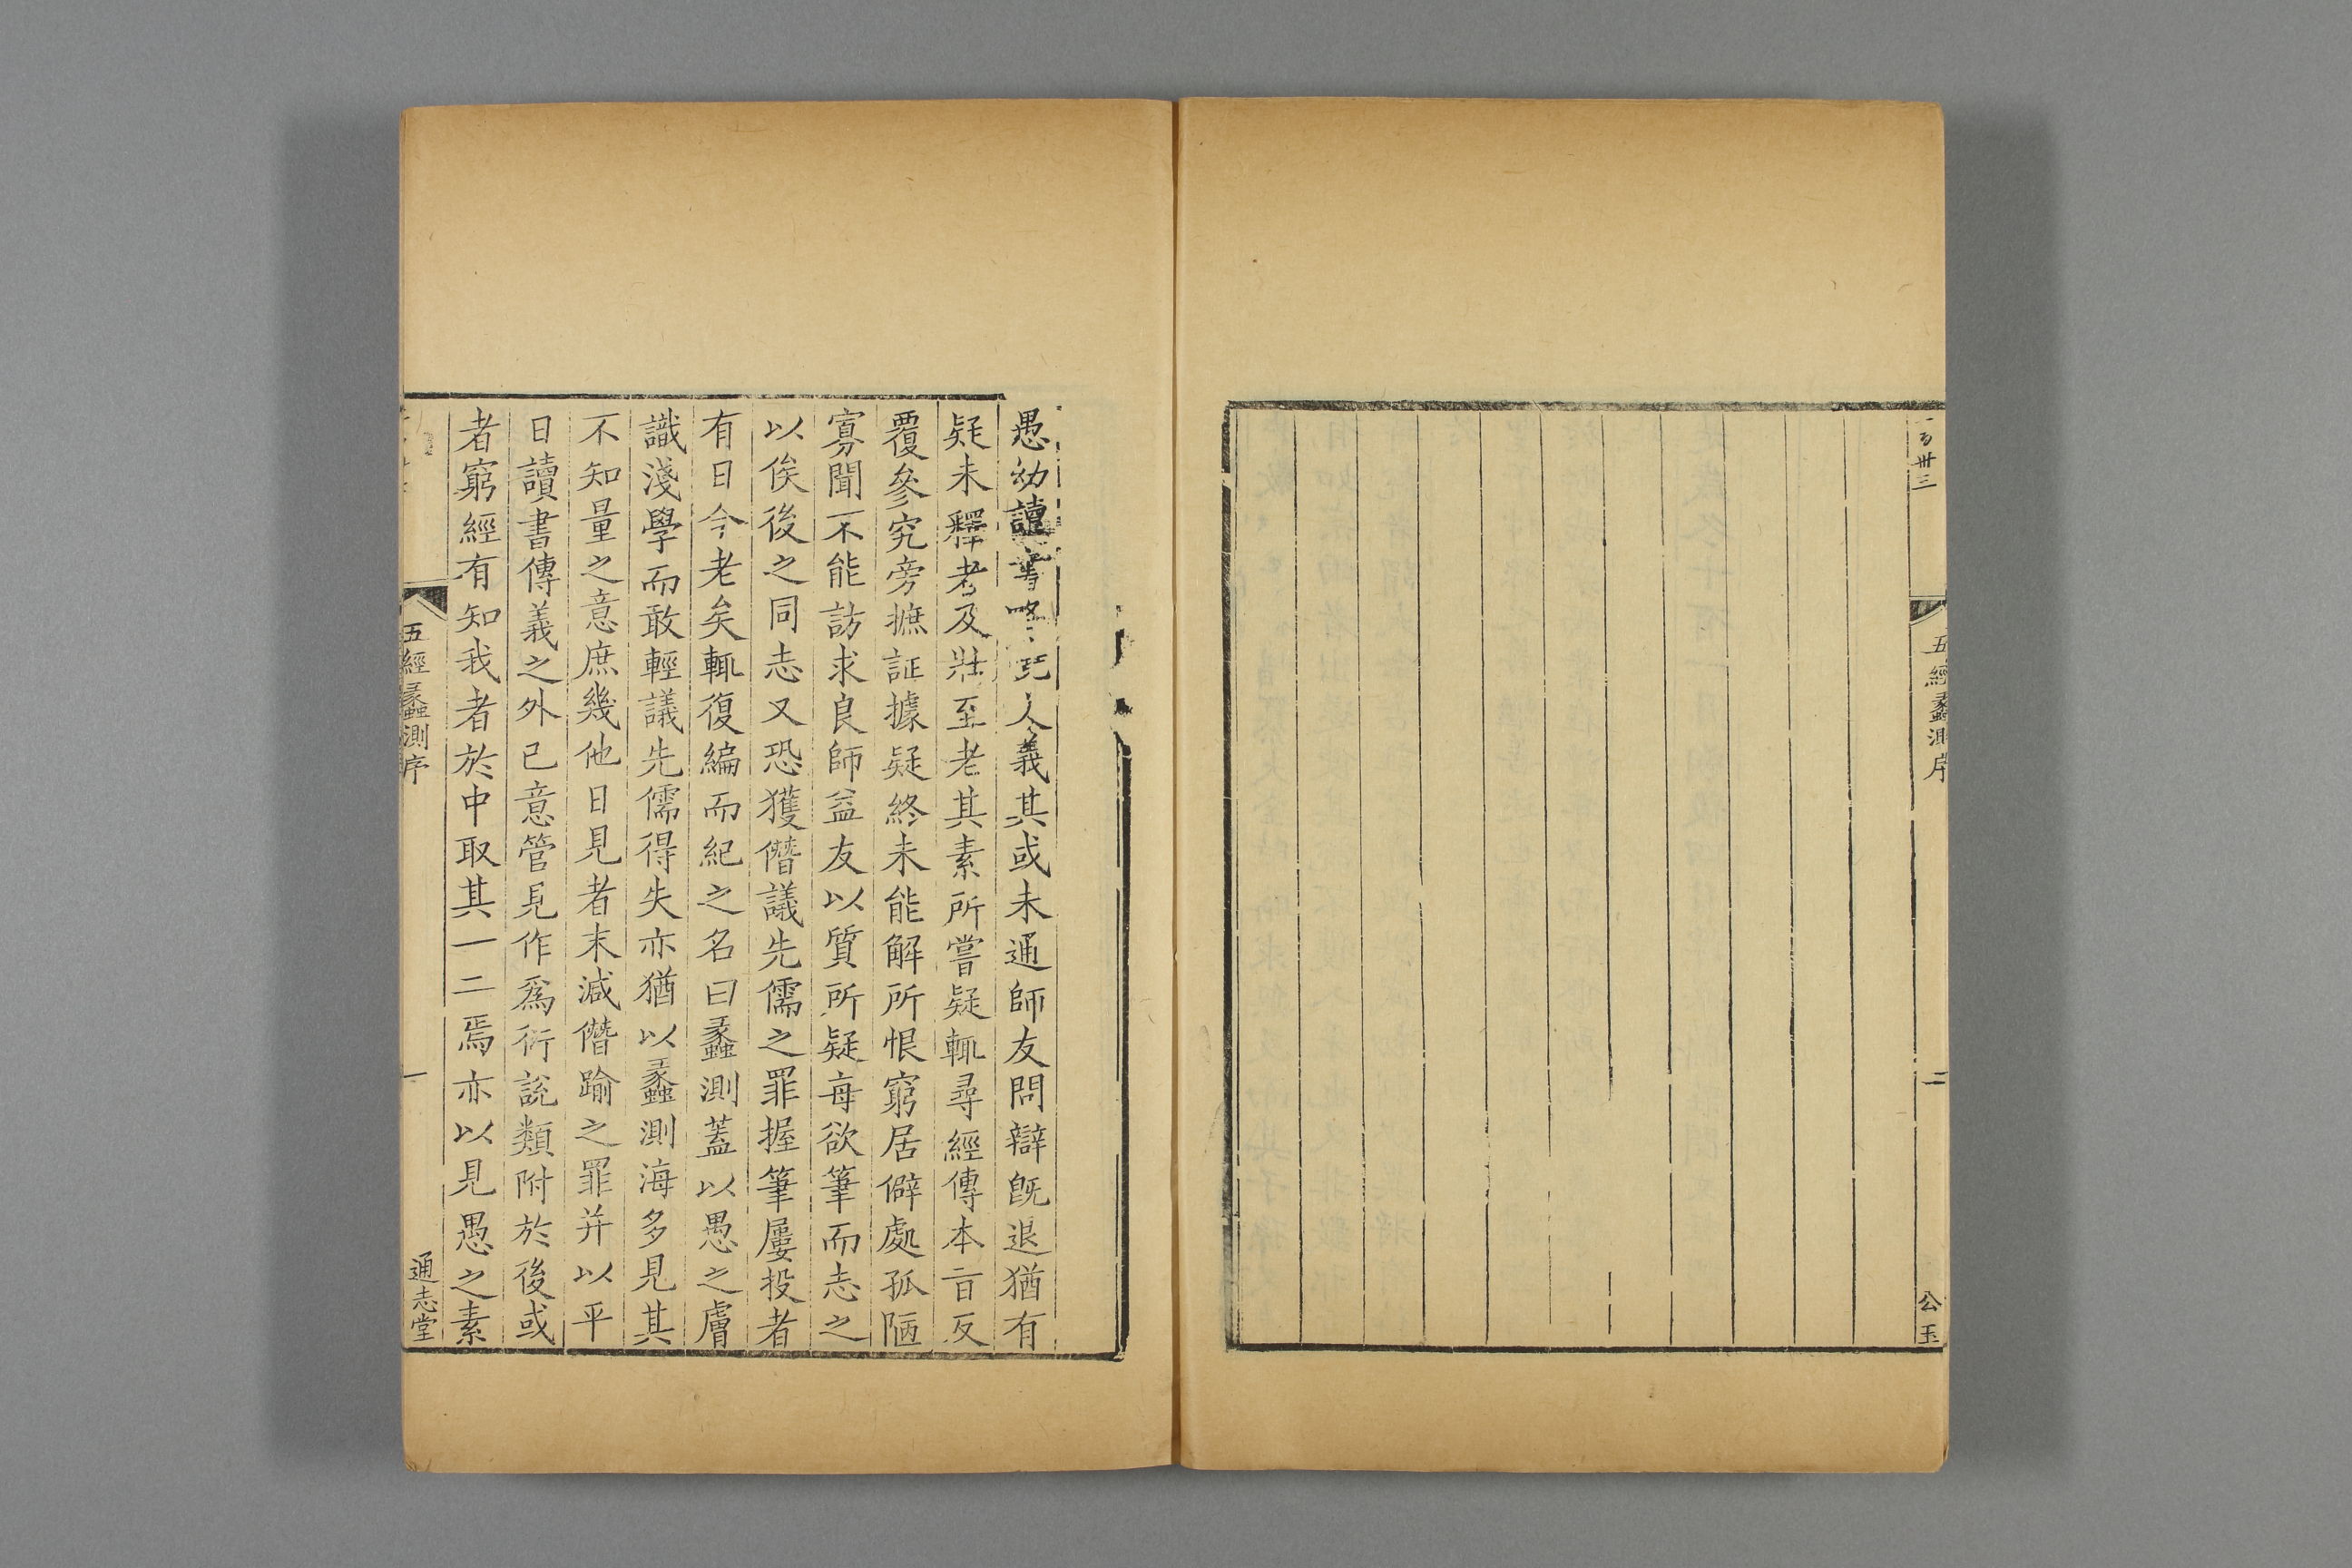 一百卅三
五經蠡測序
二
公玉
愚幼讀書略究人義其或未通師友問辯旣退猶有
疑未釋者及壯至老其素所嘗疑輒尋經傳本旨反
覆參究旁摭証據疑終未能解所恨窮居僻處孤陋
寡聞不能訪求良師益友以質所疑每欲筆而志之
以俟後之同志又恐獲僭議先儒之罪握筆屢投者
有日今老矣輒復編而紀之名曰蠡測蓋以愚之膚
識淺學而敢輕議先儒得失亦猶以蠡測海多見其
不知量之意庶幾他日見者末減僭踰之罪并以平
日讀書傳義之外已意管見作爲衍說類附於後或
者窮經有知我者於中取其一二焉亦以見愚之素
五經蠡測序
一
通志堂